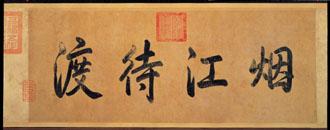 烟江待渡